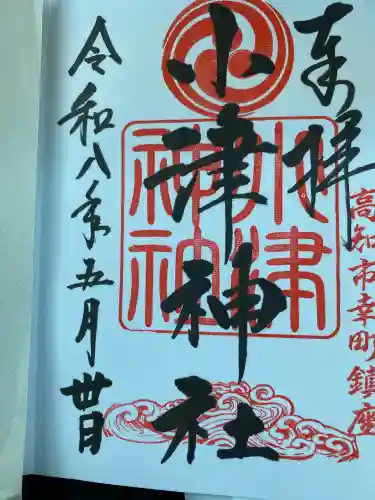 奉拝
高知市幸町鎮座
小津神社
小津
神社
令和八年五月丗日